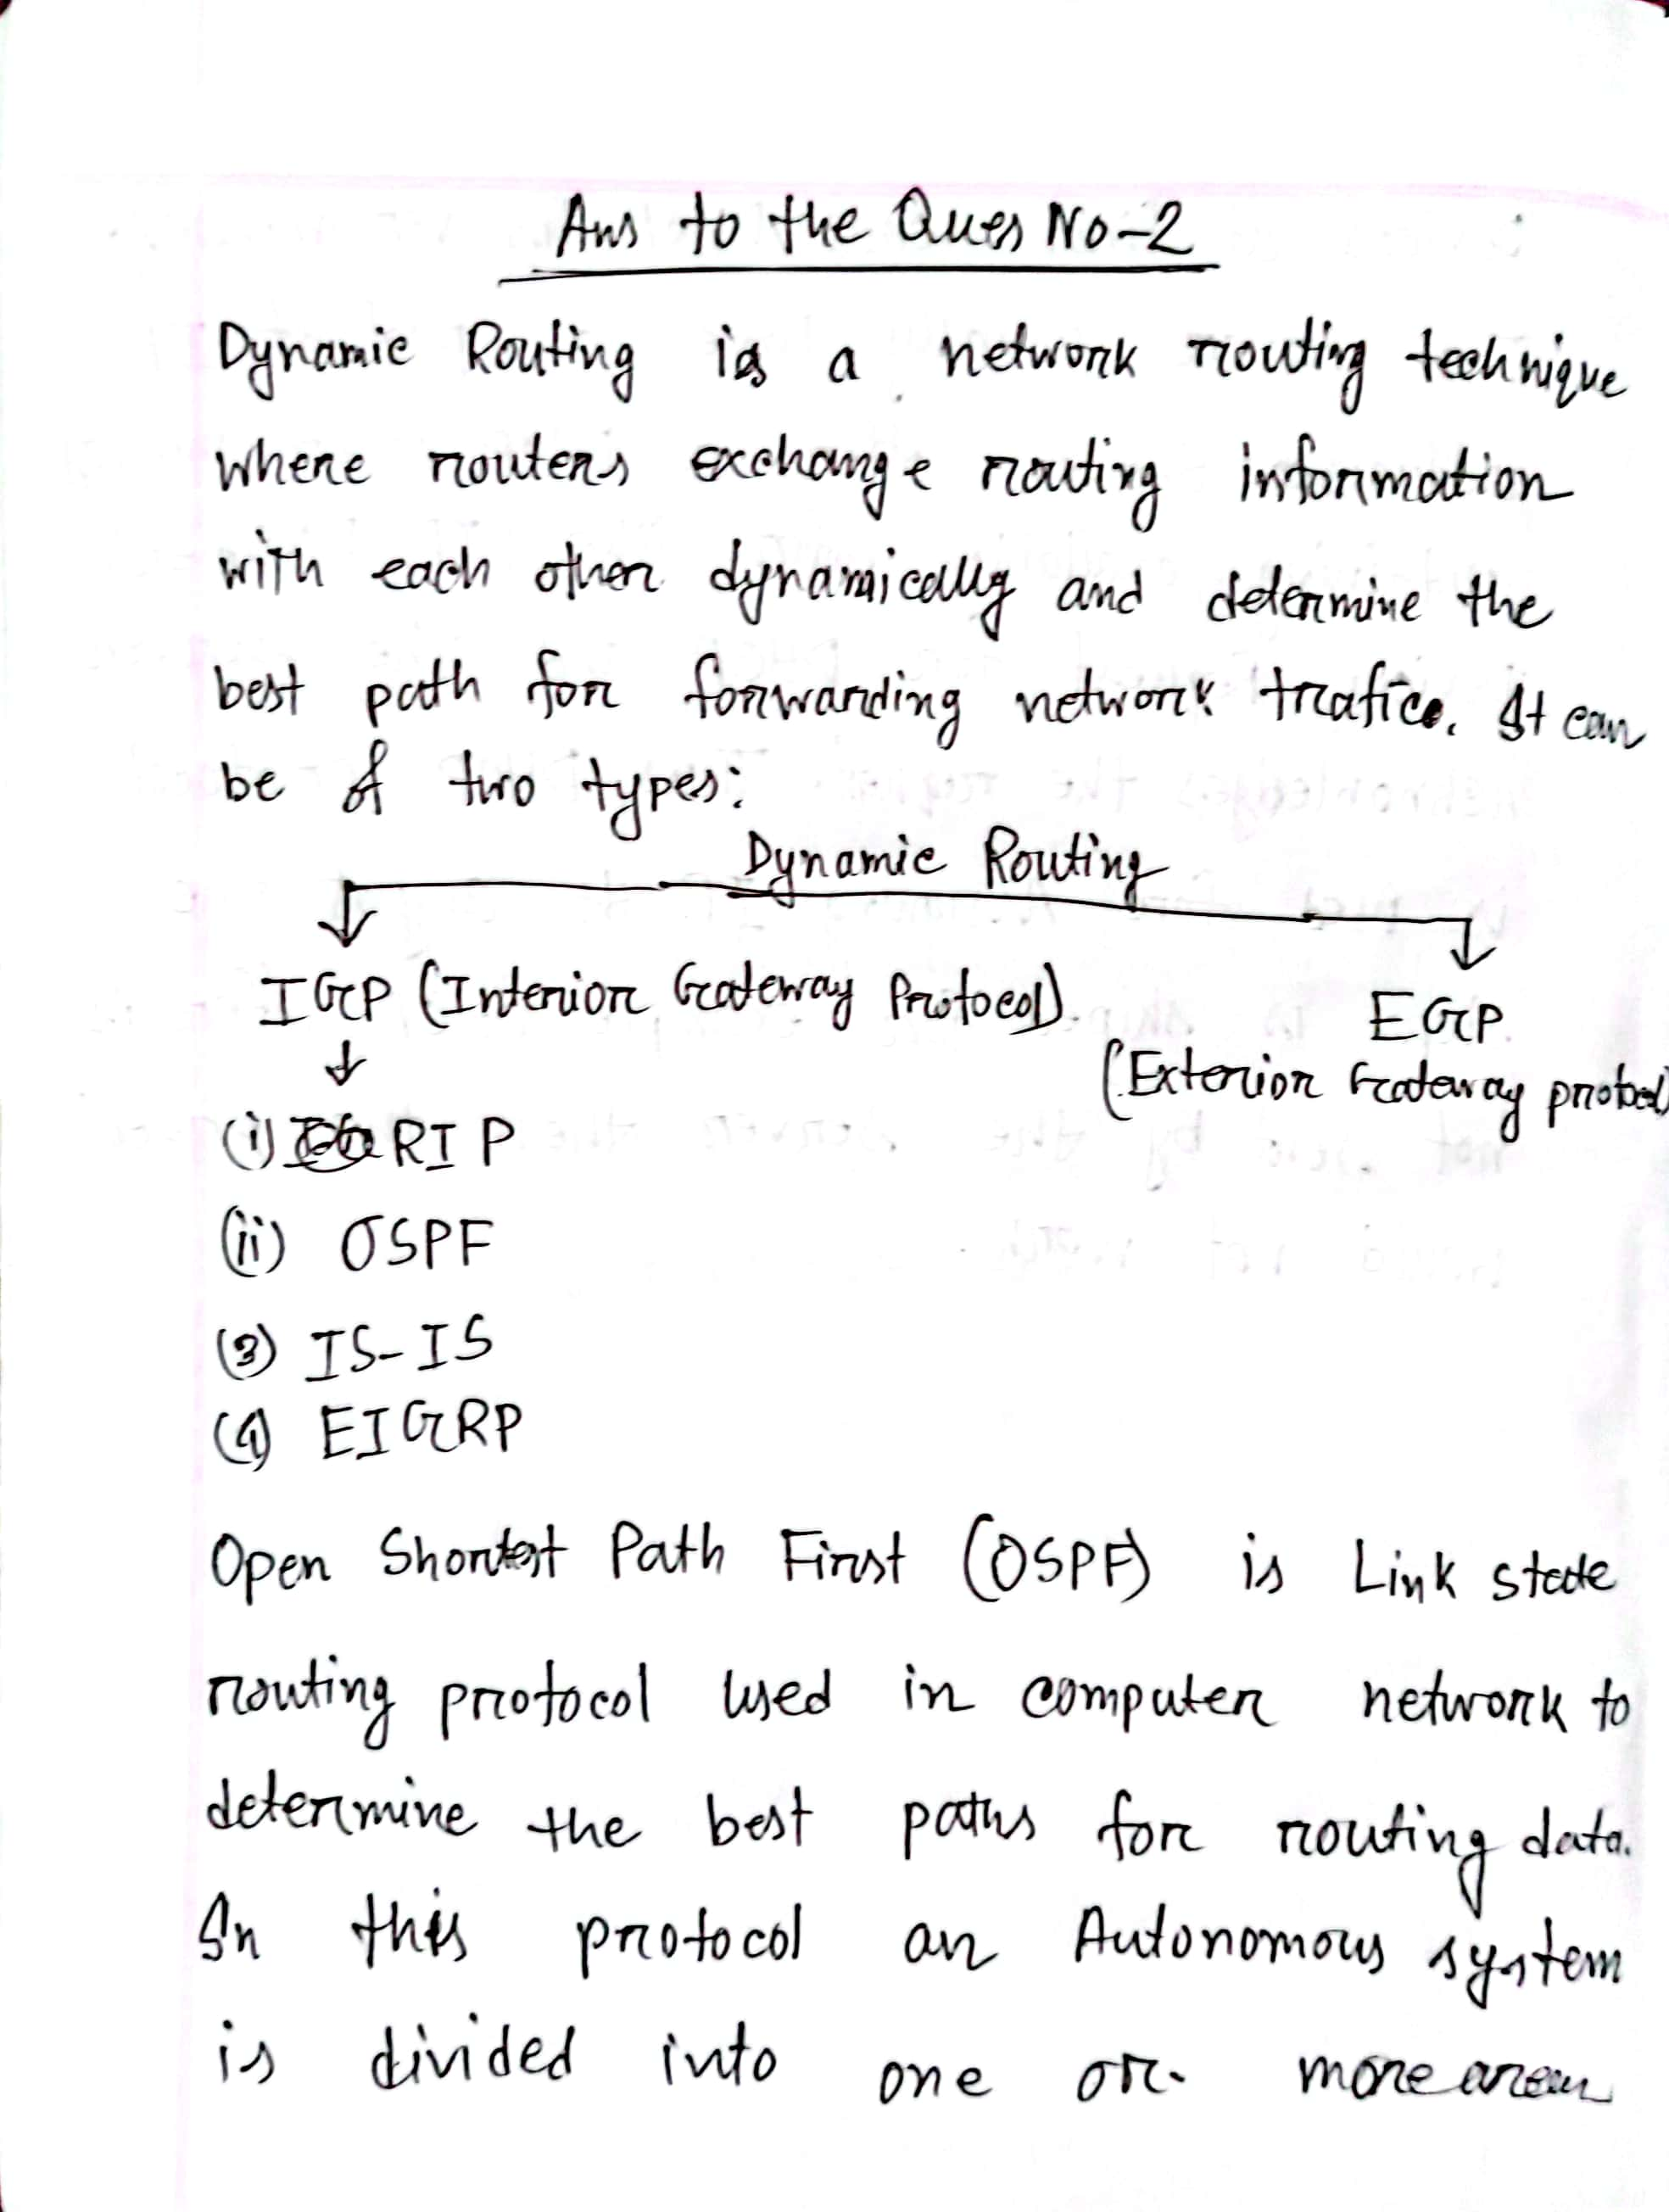 Ans to the Ques No-2
Dynamic Routing is a network routing technique
where routers exchange routing information
with each other dynamically and determine the
best path for forwarding network trafice. It can
be of two types:
Dynamic Routing
IGP (Interior Gateway Protocol).
EGP.
(Exterior Gateway protocol)
(i) RIP
(ii) OSPF
(3) IS-IS
(4) EIGRP
Open Shortest Path First (OSPF) is Link state
routing protocol used in computer network to
determine the best paths for routing data.
In this protocol an Autonomous system
is divided into one or more areas